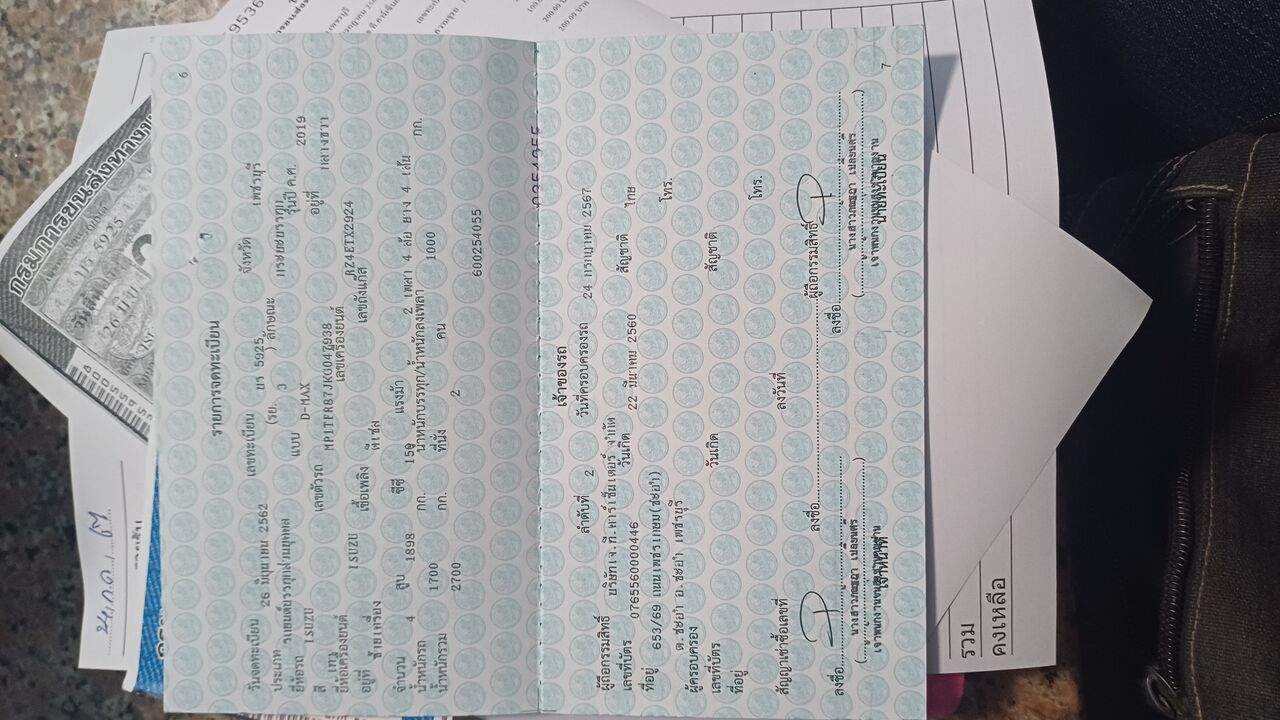 6
รายการจดทะเบียน
วันจดทะเบียน 26 มิถุนายน 2562 เลขทะเบียน ยร 5925 จังหวัด เพชรบุรี
ประเภท รถยนต์บรรทุกส่วนบุคคล (รย. 3 ) ลักษณะ กระบะบรรทุก
ยี่ห้อรถ ISUZU แบบ D-MAX รุ่นปี ค.ศ. 2019
สี เทา เลขตัวรถ MP1TFR87JKG047938 อยู่ที่ กลางขวา
ยี่ห้อเครื่องยนต์ ISUZU เลขเครื่องยนต์ RZ4ETX2924
อยู่ที่ ซ้ายเครื่อง เชื้อเพลิง ดีเซล เลขถังแก๊ส
จำนวน 4 สูบ 1898 ซีซี 150 แรงม้า 2 เพลา 4 ล้อ ยาง 4 เส้น
น้ำหนักรถ 1700 กก. น้ำหนักบรรทุก/น้ำหนักลงเพลา 1000 กก.
น้ำหนักรวม 2700 กก. ที่นั่ง 2 คน
600254055
เจ้าของรถ
ลำดับที่ 2 วันที่ครอบครองรถ 24 กรกฎาคม 2567
ผู้ถือกรรมสิทธิ์ บริษัทเจ.ที.คาร์เซ็นเตอร์ จำกัด
เลขที่บัตร 0765560000446 วันเกิด 22 มีนาคม 2560 สัญชาติ ไทย
ที่อยู่ 653/69 ถนนเพชรเกษม(ชะอำ) โทร.
ต.ชะอำ อ.ชะอำ เพชรบุรี
ผู้ครอบครอง
เลขที่บัตร วันเกิด สัญชาติ
ที่อยู่ โทร.
สัญญาเช่าซื้อเลขที่ ลงวันที่
ลงชื่อ ผู้ถือกรรมสิทธิ์
ลงชื่อ ลงชื่อ
7
กรมการขนส่งทางบก
ยร 5925
26 มิย.
รวม
คงเหลือ